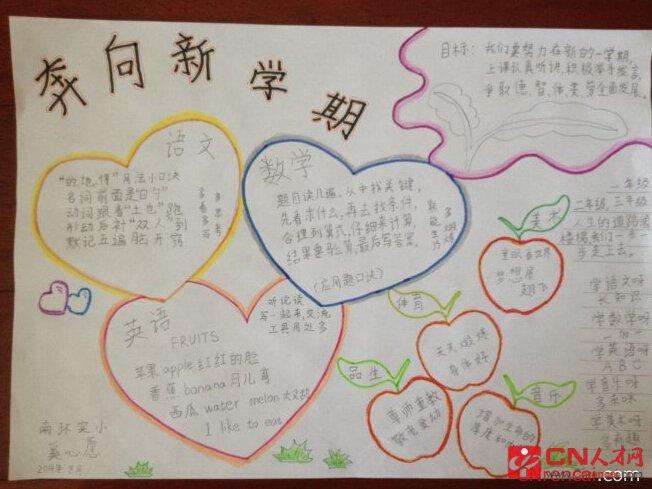 奔向新学期
目标：我们要努力在新的一学期,
上课认真听讲,积极举手发言,
争取德、智、体、美、劳全面发展。
语文
"的、地、得"用法小口诀
名词前面是"白勺"
动词跟着"土也"跑
形动后补"双人"到
默记五遍脑开窍
多看多写
多思考
数学
题目读几遍,从中找关键,
先看求什么,再去找条件,
合理列算式,仔细来计算,
结果要验算,最后写答案。
(应用题口诀)
英语
FRUITS
苹果 apple 红红的脸
香蕉 banana 月儿弯
西瓜 water melon 大又甜
I like to eat
听说读
写一起来,交流
工具用处多
美术
梦想展
翅飞
体育
天天锻炼
身体好
品生
尊师重教
敬老爱幼
音乐
增加生命的
一年级
二年级,三年级
人生的道路
步走上去。
学语文呀
长知识
学数学呀
学英语呀
ABC
学音乐呀
学美术呀
南环实小
2014年
CN人才网